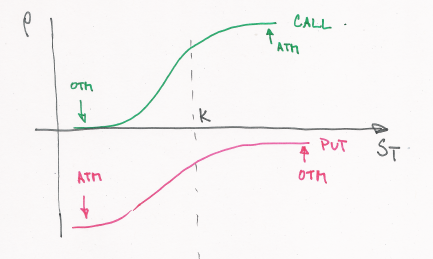 ρ
CALL
ATM
OTM
K
S_T
PUT
ATM
OTM